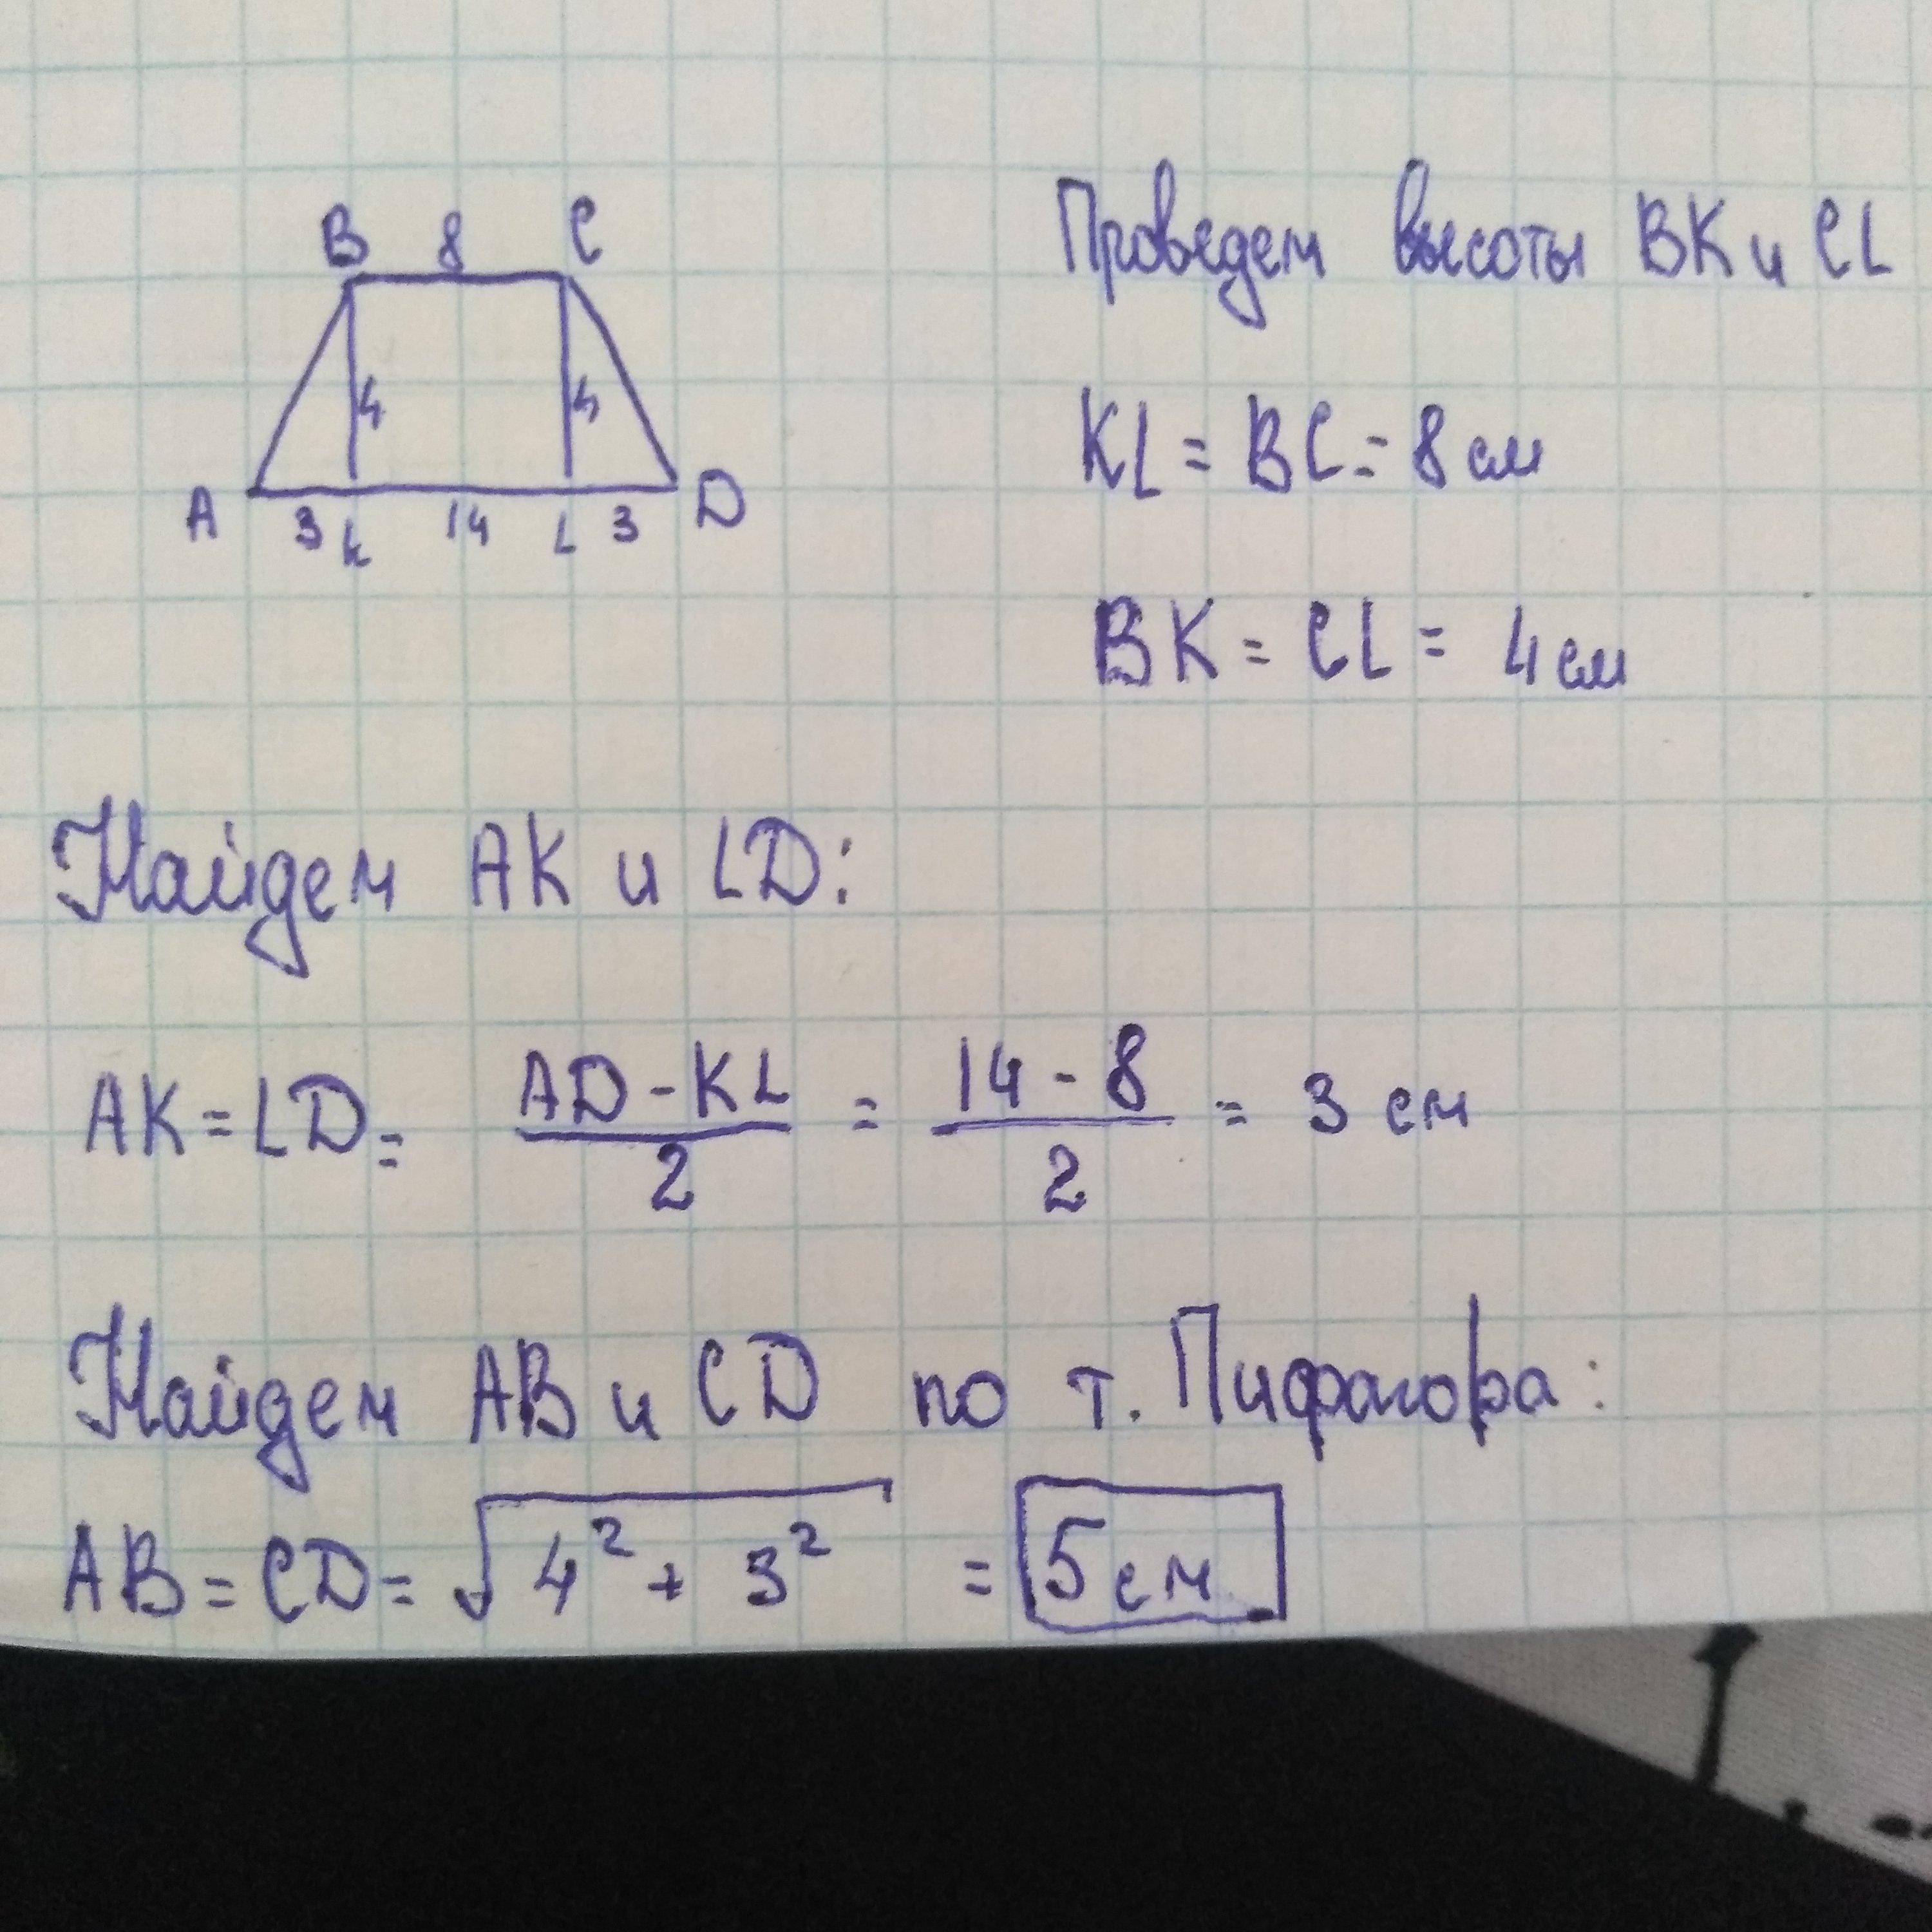 B 8 C
4 4
A 3 K 14 L 3 D
Проведем высоты BK и CL
KL = BC = 8 см
BK = CL = 4 см
Найдем AK и LD:
AK = LD = (AD - KL)/2 = (14 - 8)/2 = 3 см
Найдем AB и CD по т. Пифагора:
AB = CD = √(4² + 3²) = 5 см